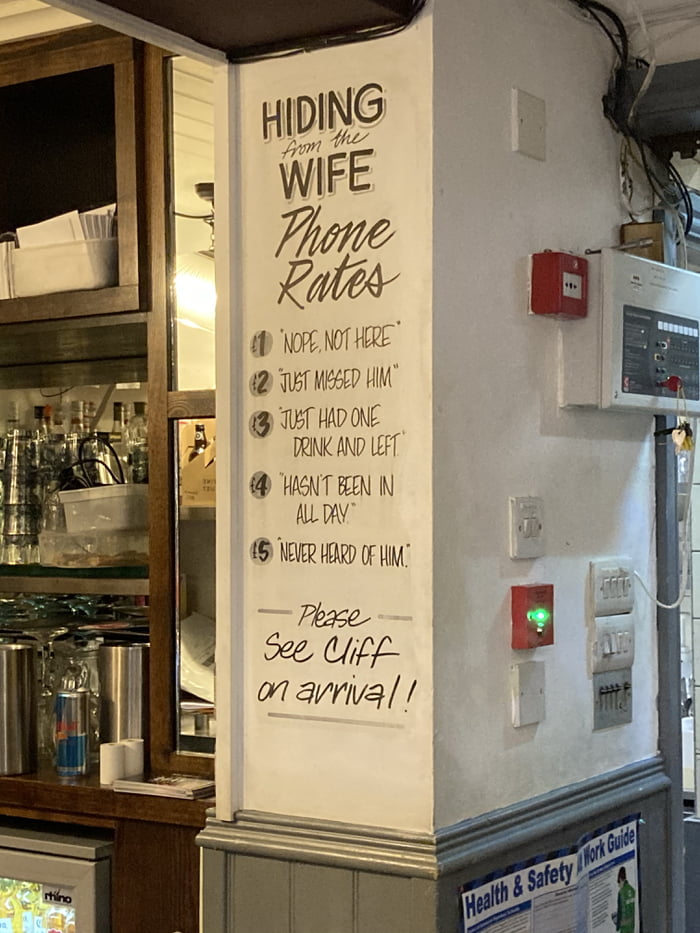 HIDING
from the
WIFE
Phone
Rates
£1 "NOPE, NOT HERE"
£2 "JUST MISSED HIM"
£3 "JUST HAD ONE
DRINK AND LEFT"
£4 "HASN'T BEEN IN
ALL DAY"
£5 "NEVER HEARD OF HIM."
Please
See Cliff
on arrival!
Health & Safety
Work Guide